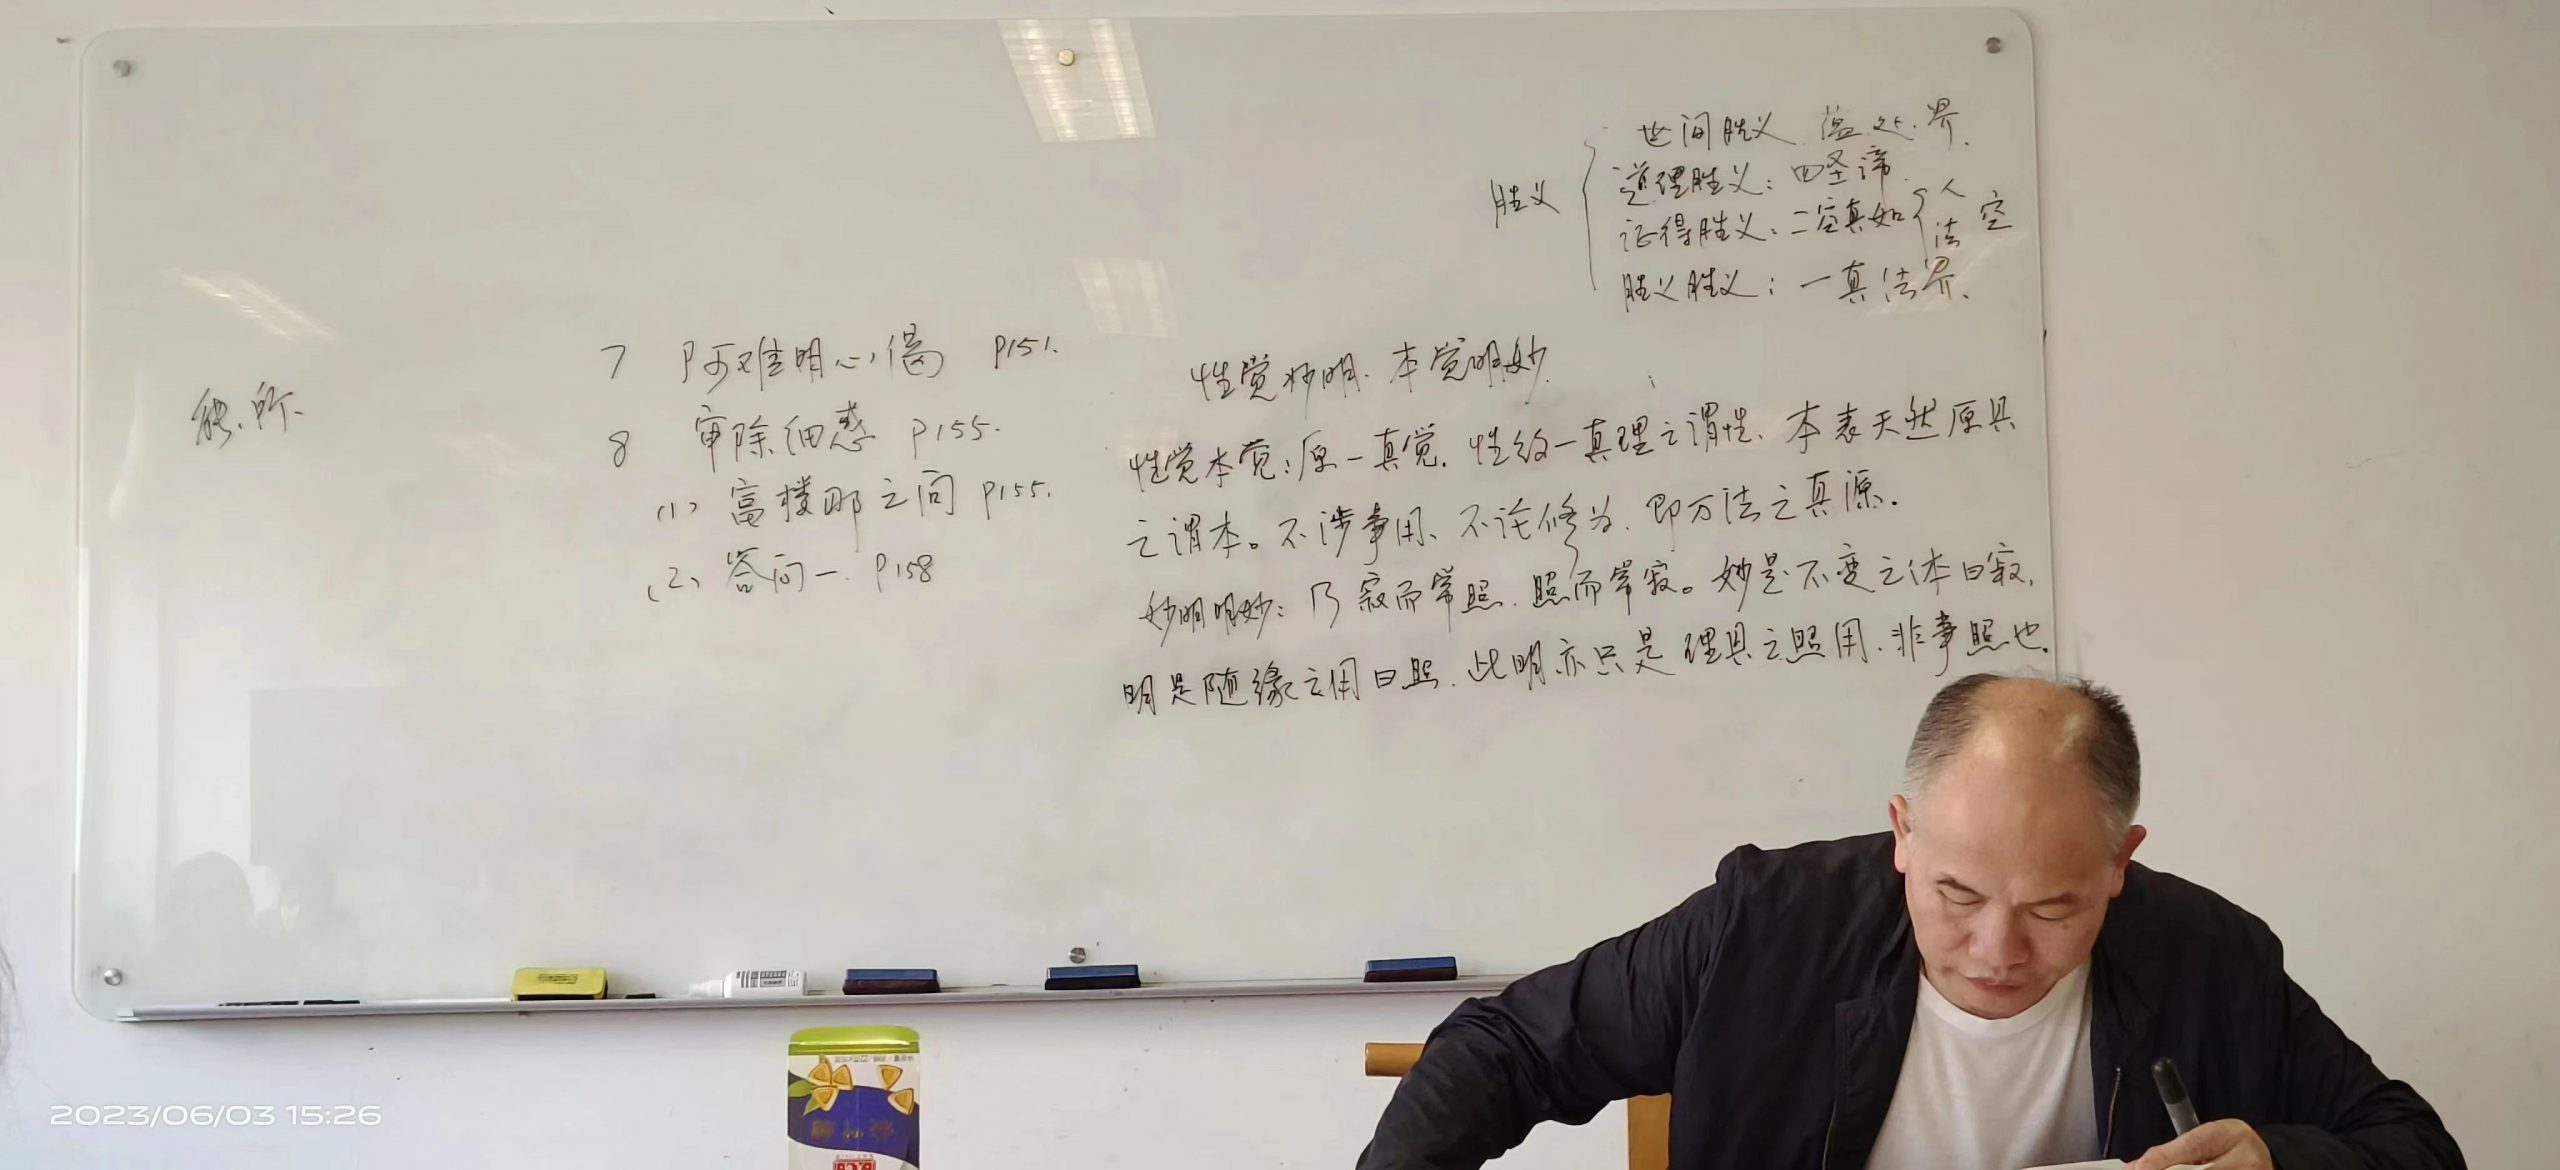 能、所、
7 阿难明心偈 P151.
8 审除细惑 P155.
(1) 富楼那之问 P155.
(2) 答问一. P158
胜义
世间胜义 蕴.处.界.
道理胜义: 四圣谛.
证得胜义: 二空真如 人 法 空
胜义胜义: 一真法界.
性觉妙明. 本觉明妙.
性觉本觉: 原一真觉. 性约一真理之谓性、本表天然原具
之谓本。不涉事用、不论修为. 即万法之真源.
妙明明妙: 乃寂而常照. 照而常寂。妙是不变之体曰寂,
明是随缘之用曰照. 此明亦只是理具之照用. 非事照也.
2023/06/03 15:26